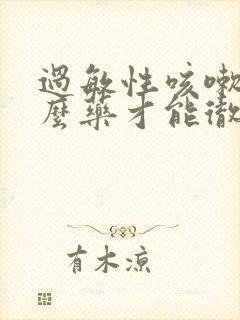 過敏性咳嗽
麼藥才能徹
有木涼